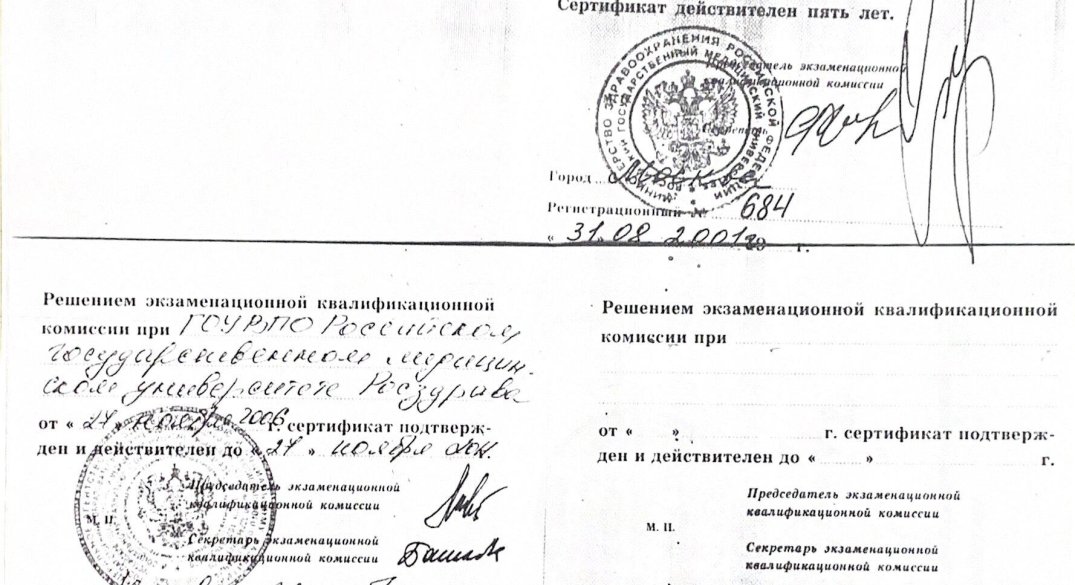 Сертификат действителен пять лет.
МИНИСТЕРСТВО ЗДРАВООХРАНЕНИЯ РОССИЙСКОЙ ФЕДЕРАЦИИ
ГОСУДАРСТВЕННЫЙ МЕДИЦИНСКИЙ УНИВЕРСИТЕТ
Председатель экзаменационной
квалификационной комиссии
Секретарь
Город
Регистрационный № 684
« 31.08.2001 г.
Решением экзаменационной квалификационной
комиссии при ГОУ ВПО Российском
государственном медицин-
ском университете Росздрава
от « 27 » ноября 2006 г. сертификат подтверж-
ден и действителен до « 27 » ноября
Председатель экзаменационной
квалификационной комиссии
М. П.
Секретарь экзаменационной
квалификационной комиссии
Решением экзаменационной квалификационной
комиссии при
от « » г. сертификат подтверж-
ден и действителен до « » г.
Председатель экзаменационной
квалификационной комиссии
М. П.
Секретарь экзаменационной
квалификационной комиссии